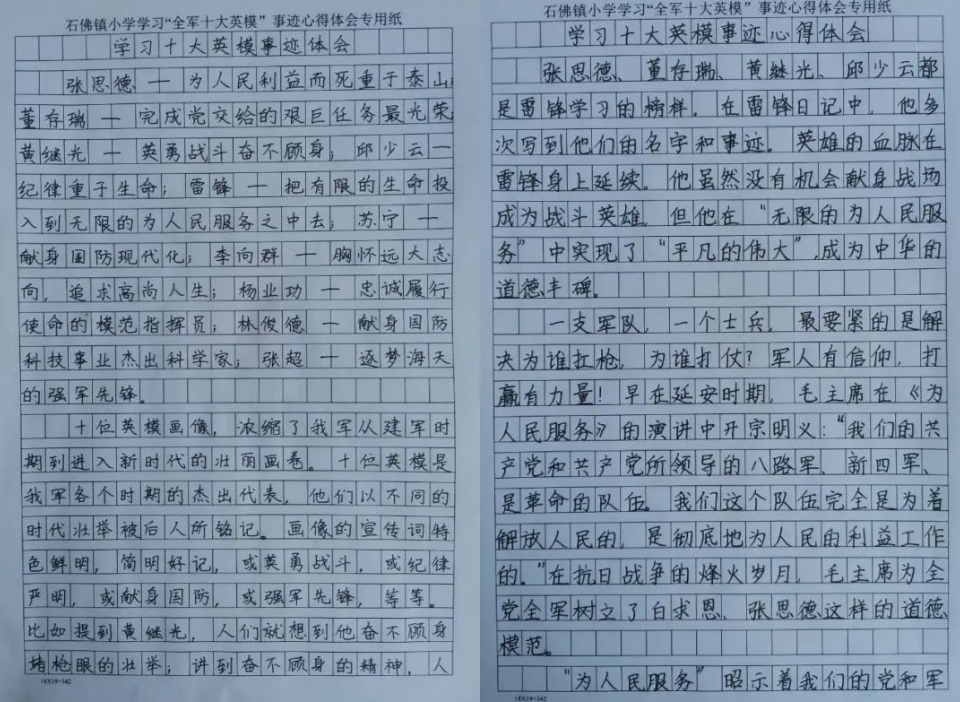 石佛镇小学学习“全军十大英模”事迹心得体会专用纸
学习十大英模事迹体会
张思德——为人民利益而死重于泰山;
董存瑞——完成党交给的艰巨任务最光荣;
黄继光——英勇战斗奋不顾身；邱少云——
纪律重于生命；雷锋——把有限的生命投
入到无限的为人民服务之中去；苏宁——
献身国防现代化；李向群——胸怀远大志
向，追求高尚人生；杨业功——忠诚履行
使命的模范指挥员；林俊德——献身国防
科技事业杰出科学家；张超——逐梦海天
的强军先锋。
十位英模画像，浓缩了我军从建军时
期到进入新时代的壮丽画卷。十位英模是
我军各个时期的杰出代表，他们以不同的
时代壮举被后人所铭记。画像的宣传词特
色鲜明，简明好记，或英勇战斗，或纪律
严明，或献身国防，或强军先锋，等等。
比如提到黄继光，人们就想到他奋不顾身
堵枪眼的壮举；讲到奋不顾身的精神，人
18X19=342
石佛镇小学学习“全军十大英模”事迹心得体会专用纸
学习十大英模事迹心得体会
张思德、董存瑞、黄继光、邱少云都
是雷锋学习的榜样，在雷锋日记中，他多
次写到他们的名字和事迹。英雄的血脉在
雷锋身上延续。他虽然没有机会献身战场
成为战斗英雄，但他在“无限的为人民服
务”中实现了“平凡的伟大”，成为中华的
道德丰碑。
一支军队，一个士兵，最要紧的是解
决为谁扛枪，为谁打仗？军人有信仰，打
赢有力量！早在延安时期，毛主席在《为
人民服务》的演讲中开宗明义：“我们的共
产党和共产党所领导的八路军、新四军、
是革命的队伍。我们这个队伍完全是为着
解放人民的，是彻底地为人民的利益工作
的。”在抗日战争的烽火岁月，毛主席为全
党全军树立了白求恩、张思德这样的道德
模范。
“为人民服务”昭示着我们的党和军
18X19=342